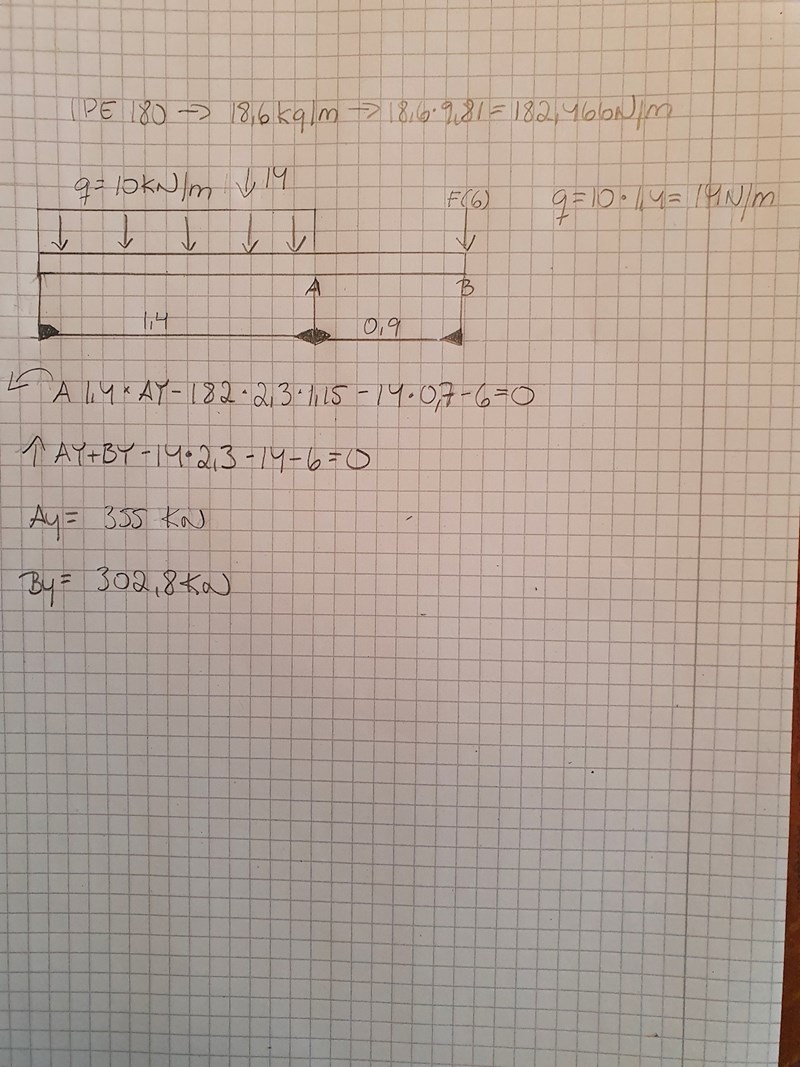 IPE 180 → 18,6 kg/m → 18,6·9,81 = 182,466N/m
q=10kN/m ↓14
F(6) q=10·1,4= 14N/m
A B
1,4 0,9
A 1,4 × AY - 182·2,3·1,15 - 14·0,7 - 6 = 0
↑ AY+BY - 14·2,3 - 14 - 6 = 0
Ay = 355 KN
By = 302,8 KN